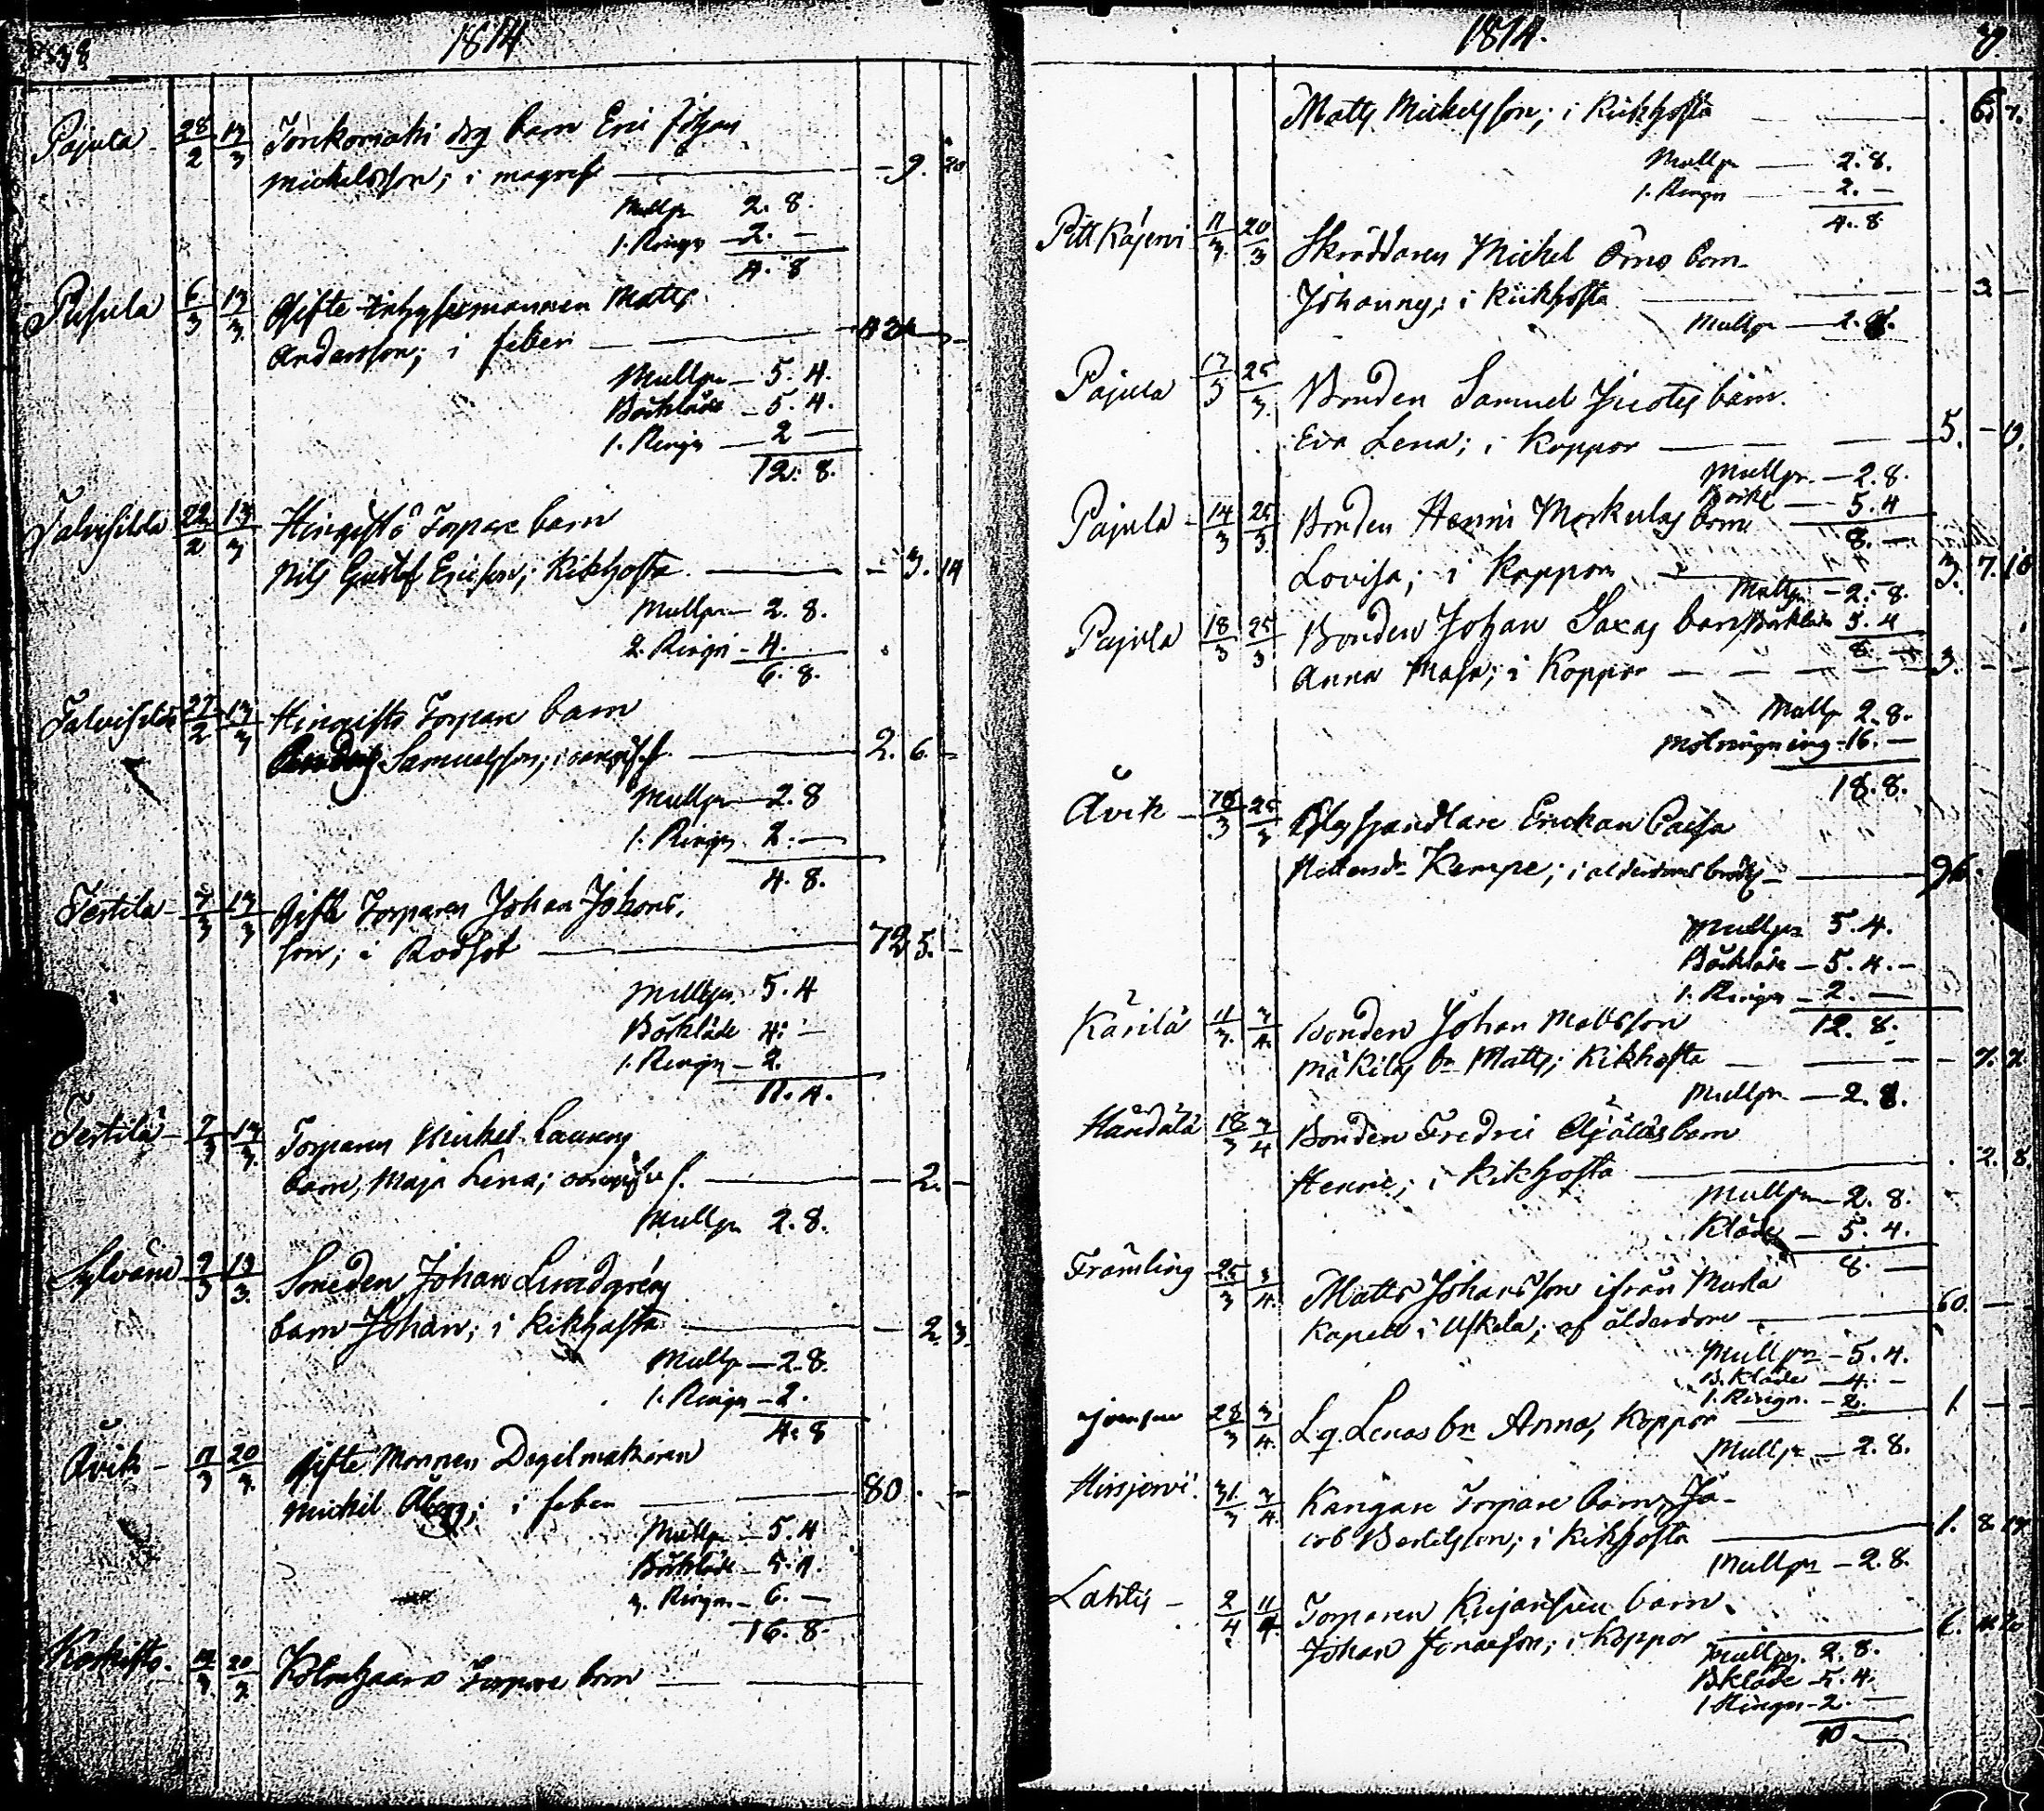 1814
Pajula 28/2 13/3 barn Eric Johan
Mickelsson; i magref — 9. 20
Mullpn 2. 8.
1. Ringn 2. —
4. 8
Pusula 6/3 13/3 Gifte Matts
Andersson; i feber
Mullpn — 5. 4.
Bårkläde — 5. 4.
1. Ringn — 2 —
12. 8.
Talvisilda 22/2 13/3 Hingistö Torpare barn
Nils Gustaf Ericsson; Kikhosta — 3. 14
Mullpn — 2. 8.
2. Ringn — 4.
6. 8.
Talvisilda 27/2 13/3 Hingistö Torpare barn
Samuelsson; — 2. 6. —
Mullpn — 2. 8
1. Ringn 2. —
4. 8.
Tertilä 7/3 13/3 Gifte Torparen Johan Johans-
son; i Rödsot — 72 5. —
Mullpn 5. 4
Bårkläde 4. —
1. Ringn — 2.
11. 4.
Tertilä 7/3 13/3 Torparen Michel
barn, Maja Lena; — 2. —
Mullpn 2. 8.
Sylvänä 9/3 13/3 Smeden Johan Lindgréns
barn Johan; i Kikhosta — 2. 3.
Mullpn — 2. 8.
1. Ringn — 2.
4. 8
Åvik 11/3 20/3 Gifte Mannen Degelmakaren
Michel Åberg; i feber — 80. —
Mullpn — 5. 4
Bårkläde — 5. 4.
3. Ringn — 6. —
16. 8.
20/3 Torpare barn —
1814.
Matts Mickelsson; i Kikhosta — 6. 7.
Mullpn — 2. 8.
1. Ringn — 2. —
4. 8
Pittkäjervi 11/3 20/3 Skräddaren Michel Örns barn
Johannes; i Kikhosta — 3 —
Mullpn — 2. 8.
Pajula 17/3 25/3 Bonden Samuel barn
Eva Lena; i Koppor — 5. — 19.
Mullpn — 2. 8.
5. 4
8. —
Pajula 14/3 25/3 Bonden Henric Markulas barn
Lovisa; i Koppor — 3. 7. 18
Mullpn — 2. 8.
Bårkläde 5. 4
8. —
Pajula 18/3 25/3 Bonden Johan Saxas barn
Anna Maja; i Koppor — 3. — —
Mullpn 2. 8.
Målringning 16. —
18. 8.
Åvik 18/3 25/3 Enckan Caisa
Kempe; i — 96.
Mullpn 5. 4.
Bårkläde — 5. 4. —
1. Ringn — 2. —
12. 8.
Kärilä 11/3 3/4 Bonden Johan Mattsson
Mäkiläs bn Matts; Kikhosta — 7. 2
Mullpn — 2. 8.
Händälä 18/3 3/4 Bonden Fredric barn
Henric; i Kikhosta — 2. 8.
Mullpn — 2. 8.
Kläde — 5. 4.
8. —
Främling 25/3 3/4 Matts Johansson ifrån
Kapell i Uskela; af ålderdom — 60. — —
Mullpn — 5. 4.
B. Kläde — 4. —
1. Ringn. — 2.
28/3 3/4 Lq. Lenas bn Anna, Koppor — 1. — —
Mullpn — 2. 8.
Hirsjervi 31/3 3/4 Kangare Torpare barn Ja-
cob Bertilsson; i Kikhosta — 1. 8. 14
Mullpn — 2. 8.
Lahtis — 2/4 11/4 Torparen barn
Johan Jonasson; i Koppor
Mullpn. 2. 8.
B kläde — 5. 4.
1 Ringn — 2. —
10 —